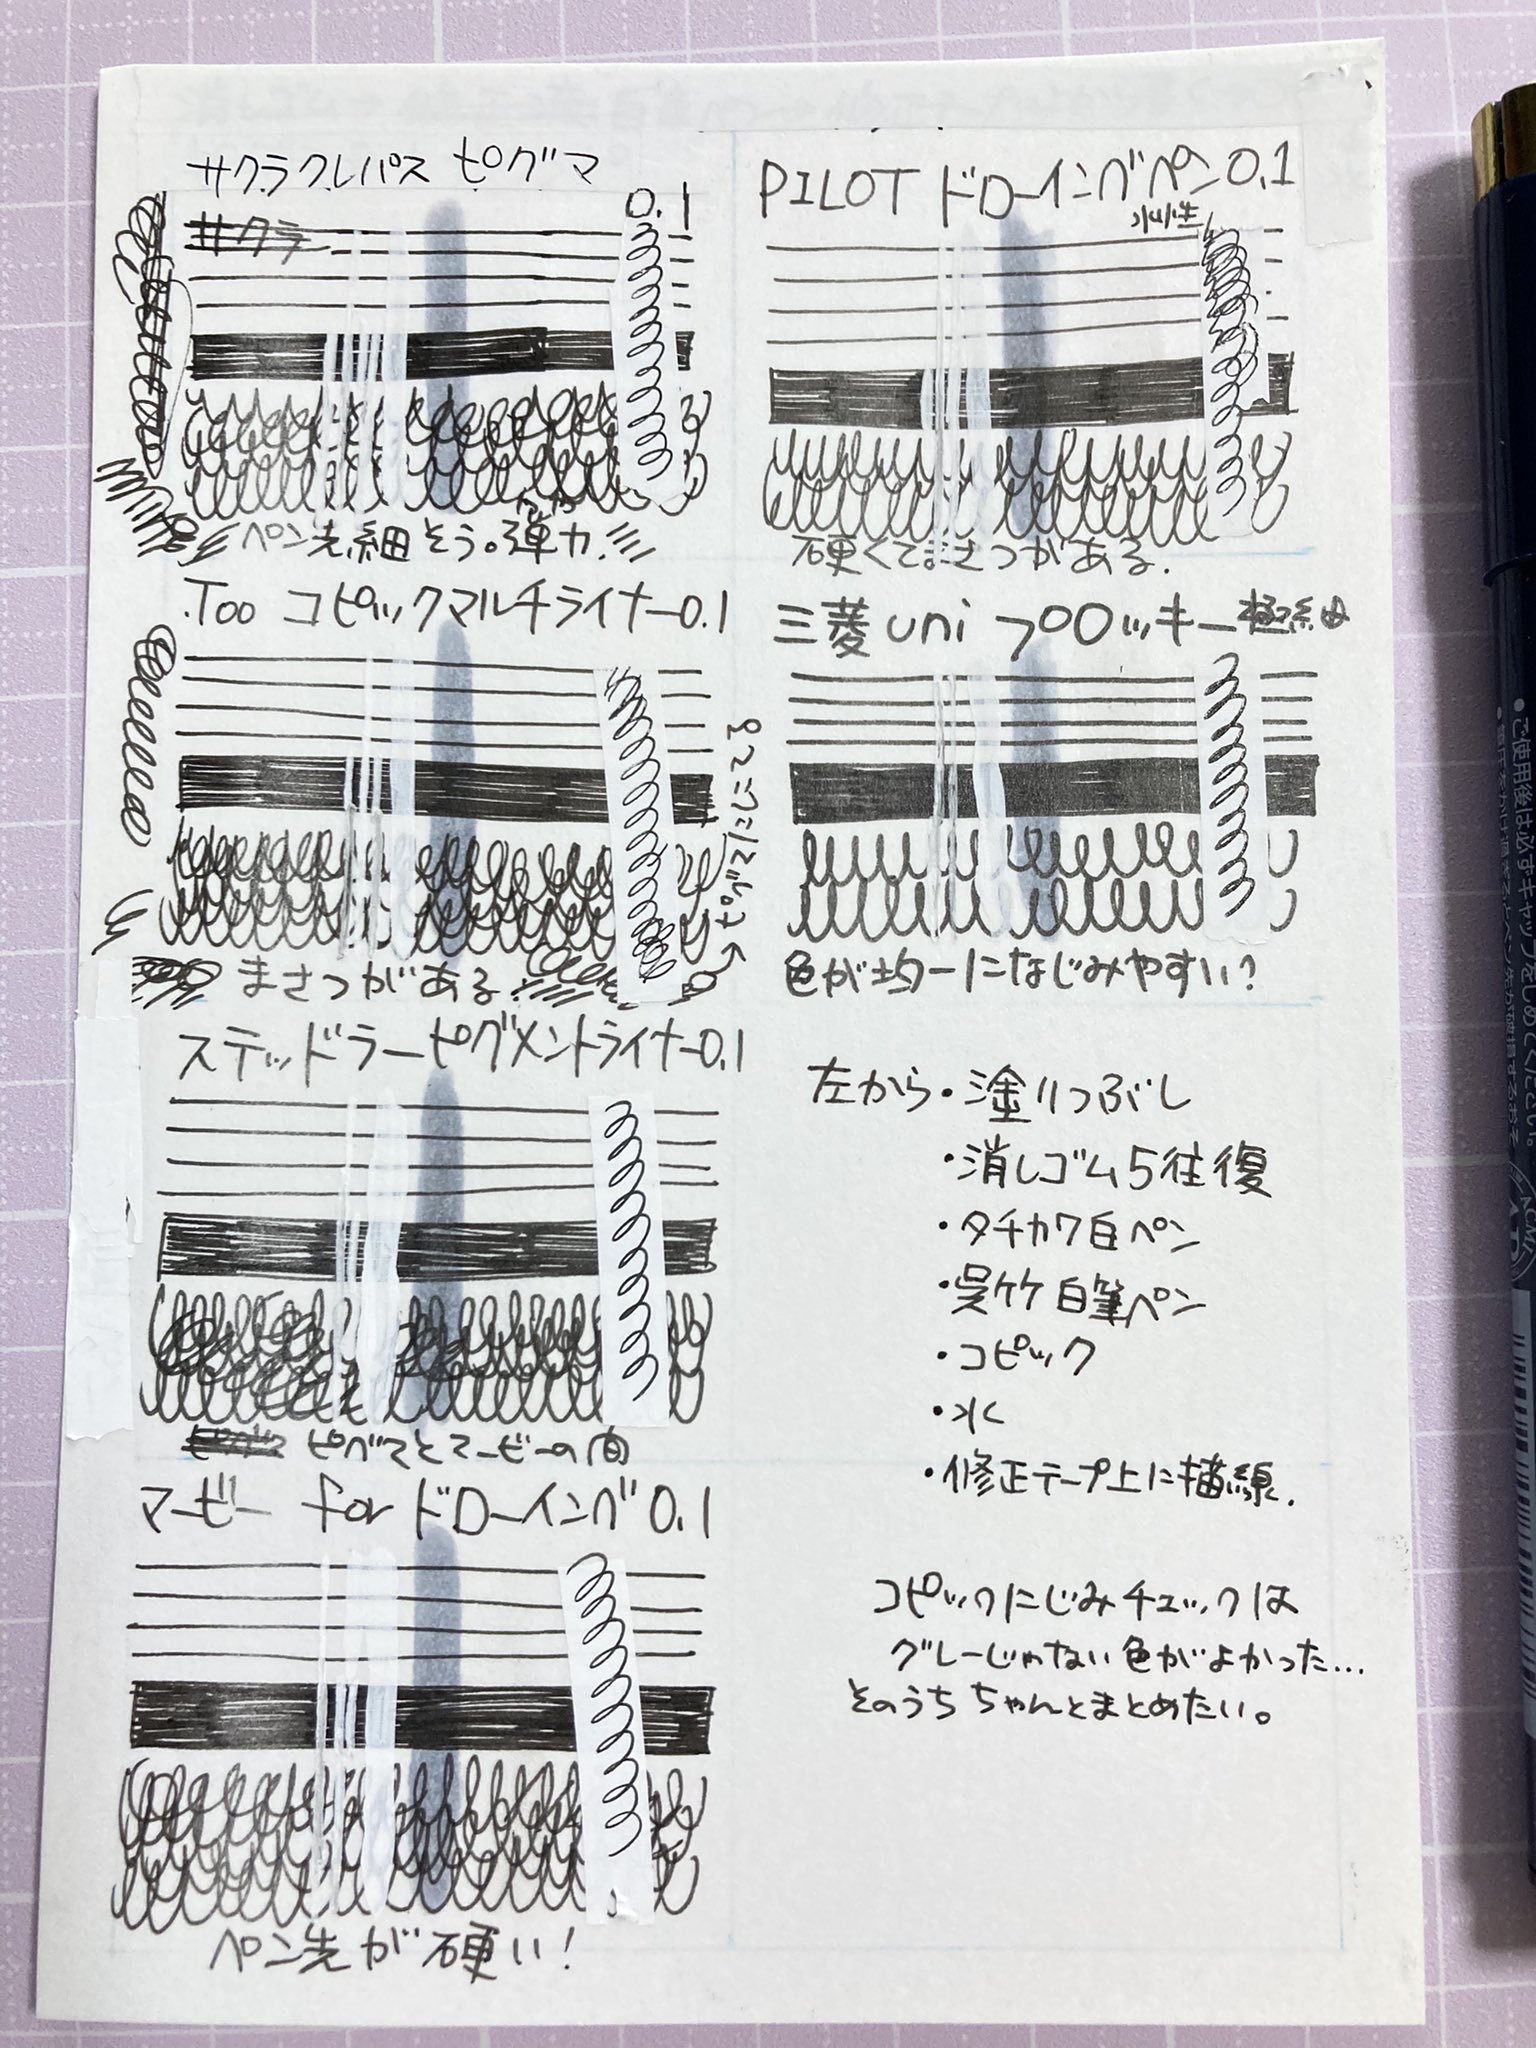 サクラクレパス ピグマ
0.1
サクラ
ペン先細そう。弾力!
Too コピックマルチライナー0.1
まさつがある
→ピグマににてる
ステッドラーピグメントライナー0.1
ピグマとマービーの間
マービー for ドローイング 0.1
ペン先が硬い!
PILOT ドローイングペン 0.1
水性
硬くてまさつがある.
三菱 uni プロッキー極細
色が均一になじみやすい?
左から・塗りつぶし
・消しゴム5往復
・タチカワ白ペン
・呉竹 白筆ペン
・コピック
・水
・修正テープ上に描線.
コピックにじみチェックは
グレーじゃない色がよかった…
そのうち ちゃんとまとめたい。
・ご使用後は必ずキャップをしめてください。